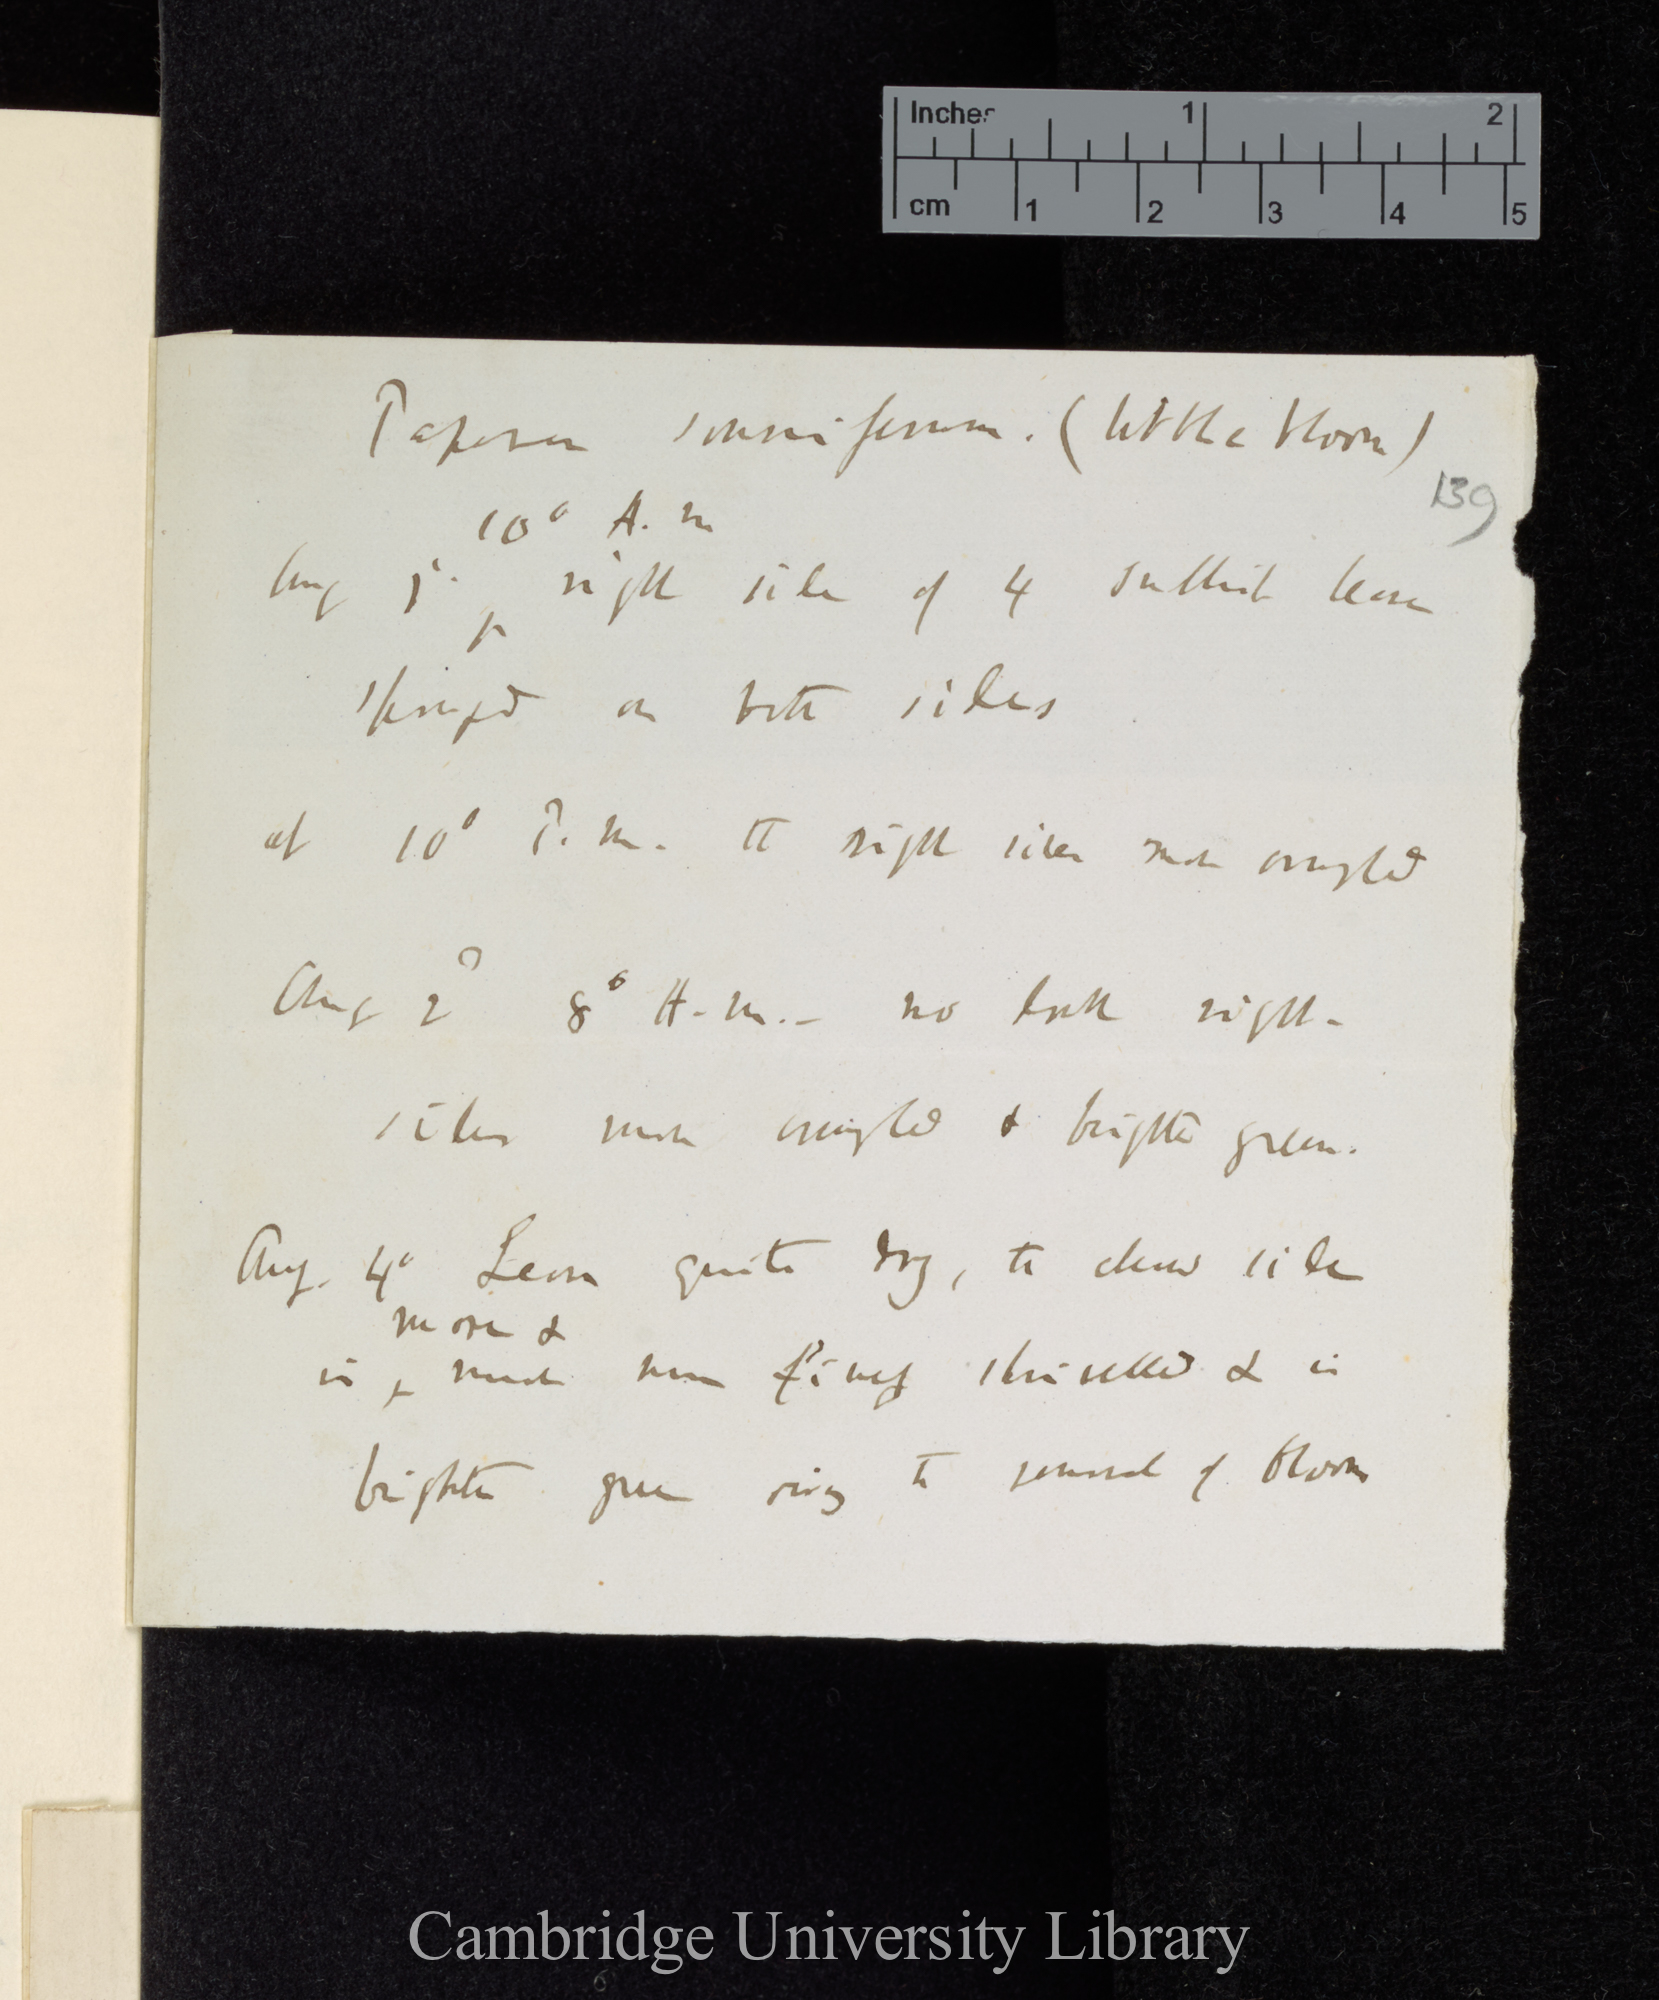 Inches 1 2
cm 1 2 3 4 5
Papaver somniferum. (little bloom)
139
10° A. m
Aug 1st. right side of 4 leaves
sponged on both sides
at 10° P. m. the right sides more crumpled
Aug 2d 8° A. m. — no doubt right-
sides more crumpled & brighter green.
Aug. 4° Leaves quite dry, the side
more &
is much more finely shrivelled & is
brighter green owing to removal of bloom
Cambridge University Library